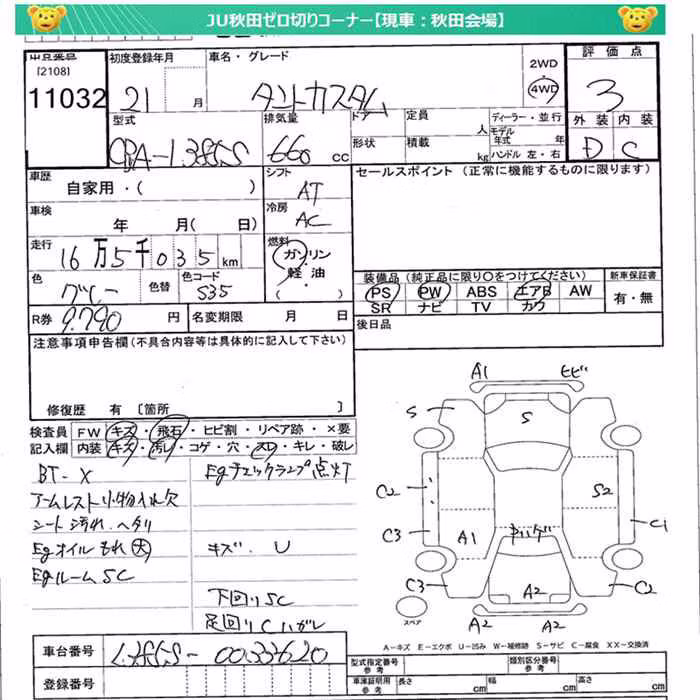 JU秋田ゼロ切りコーナー【現車：秋田会場】
出品番号 初度登録年月 車名・グレード 2WD 評価点
(2108) 4WD
11032 21 月 タントカスタム 3
型式 排気量 ドア 定員 人 ディーラー・並行 外装 内装
CBA-L385S 660 cc 形状 積載 kg モデル年式 年 D C
ハンドル 左・右
車歴 シフト セールスポイント（正常に機能するものに限ります）
自家用・（ ） AT
車検 冷房
年 月（ 日） AC
走行 燃料
16万5千035km ガソリン
軽油 装備品（純正品に限り○をつけてください） 新車保証書
色 色替 色コード PS PW ABS エアB AW 有・無
グレー S35 SR ナビ TV カワ
R券 9.790 円 名変期限 月 日 後日品
注意事項申告欄（不具合内容等は具体的に記入して下さい）
修復歴 有［箇所 ］
検査員 FW キズ・飛石・ヒビ割・リペア跡・×要
記入欄 内装 キズ・汚れ・コゲ・穴・スレ・キレ・破レ
BT-X Egチェックランプ点灯
アームレスト小物入れ欠
シート汚れ、ヘタリ
Egオイルもれ(大) キズ・U
EgルームSC
下回りSC
足回りCハガレ
A1 ヒビ
S S
C2 S2
C3 A1 C1
C3 A2 C2
スペア A2 A2
A－キズ E－エクボ U－凹み W－補修跡 S－サビ C－腐食 XX－交換済
車台番号 L385S-0033620
登録番号
型式指定番号 参考 類別区分番号 参考
車庫証明用 参考 長さ cm 幅 cm 高さ cm